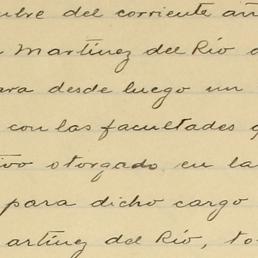 ubre del corriente añ
n Martínez del Río a
ara desde luego un
con las facultades q
tivo otorgado en la
para dicho cargo
artínez del Río, to